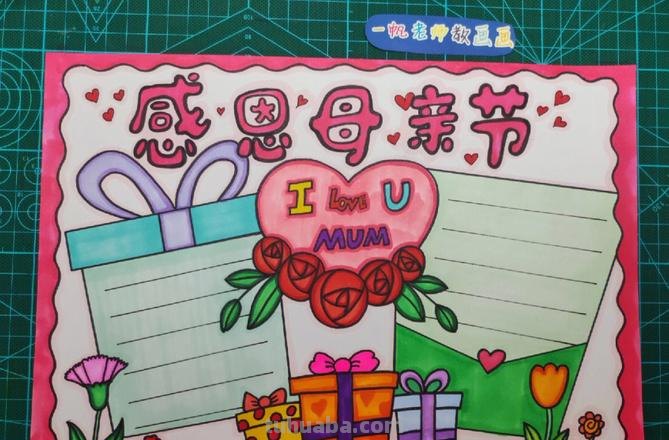 一帆老师教画画
感恩母亲节
I Love U
MUM
zuhuaba.com